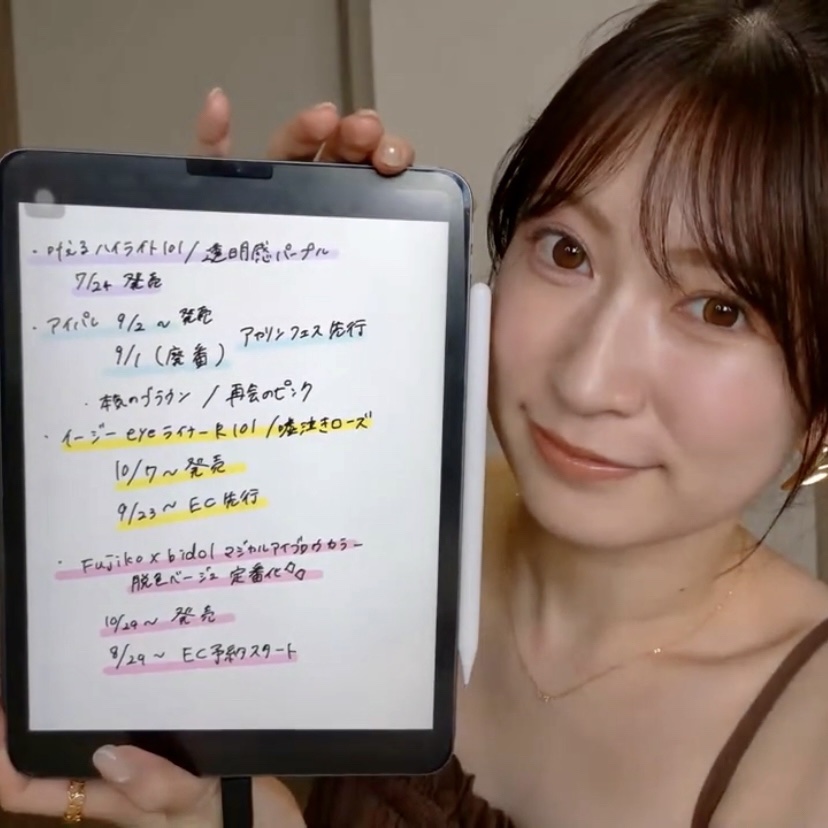 ・叶えるハイライト101/透明感パープル
7/24 発売
・アイパレ 9/2〜発売
9/1(廃番) アカリンフェス先行
・本気のブラウン/再会のピンク
・イージーeyeライナーR101/嘘泣きローズ
10/7〜発売
9/23〜EC先行
・Fujiko×bidol マジカルアイブロウカラー
脱色ベージュ 定番化
10/29〜 発売
8/29〜 EC予約スタート